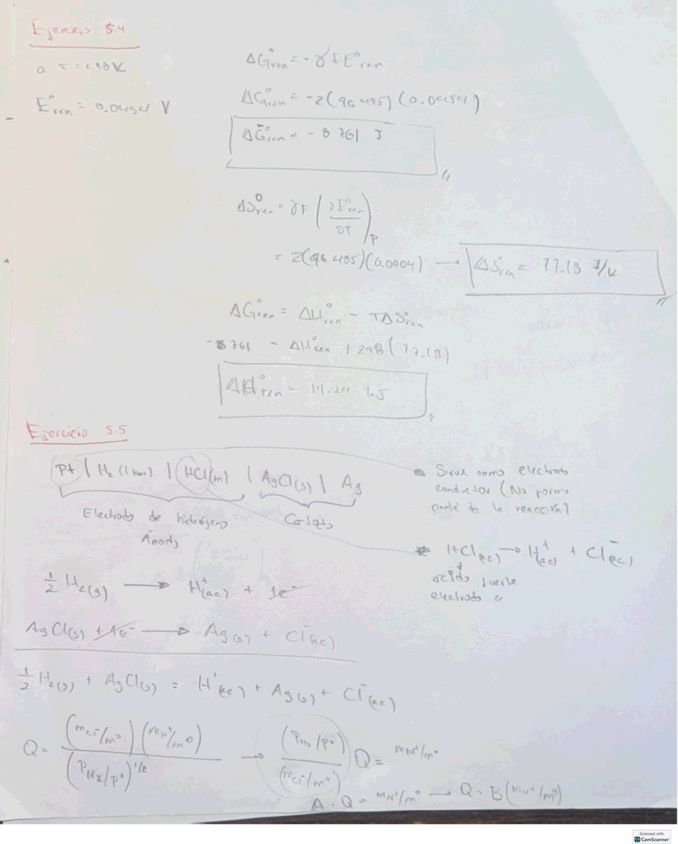 Ejercicio 5.4
a T = 298 K
E°rxn = 0.0454 V
ΔG°rxn = - γ F E°rxn
ΔG°rxn = -2(96 485)(0.0454)
ΔG°rxn = - 8 761 J
ΔS°rxn = γF (∂E°rxn/∂T)P
= 2(96 485)(0.0004) → ΔS°rxn = 77.18 J/K
ΔG°rxn = ΔH°rxn - TΔS°rxn
-8 761 = ΔH°rxn + 298(77.18)
ΔH°rxn = 14.24 kJ
Ejercicio 5.5
Pt | H2 (1 bar) | HCl(m) | AgCl(s) | Ag
Electrodo de hidrógeno
Ánodo
Cátodo
* Sirve como electrodo
conductor (No forma
parte de la reacción)
* HCl(ac) → H+(ac) + Cl-(ac)
ácido fuerte
electrodo
1/2 H2(g) → H+(ac) + 1e-
AgCl(s) + 1e- → Ag(s) + Cl-(ac)
1/2 H2(g) + AgCl(s) = H+(ac) + Ag(s) + Cl-(ac)
Q = (mCl-/m°)(mH+/m°) / (PH2/P°)^1/2 → (PH2/P°)/(mCl-/m°) Q = mH+/m°
A · Q = mH+/m° → Q = B(mH+/m°)
Scanned with
CamScanner